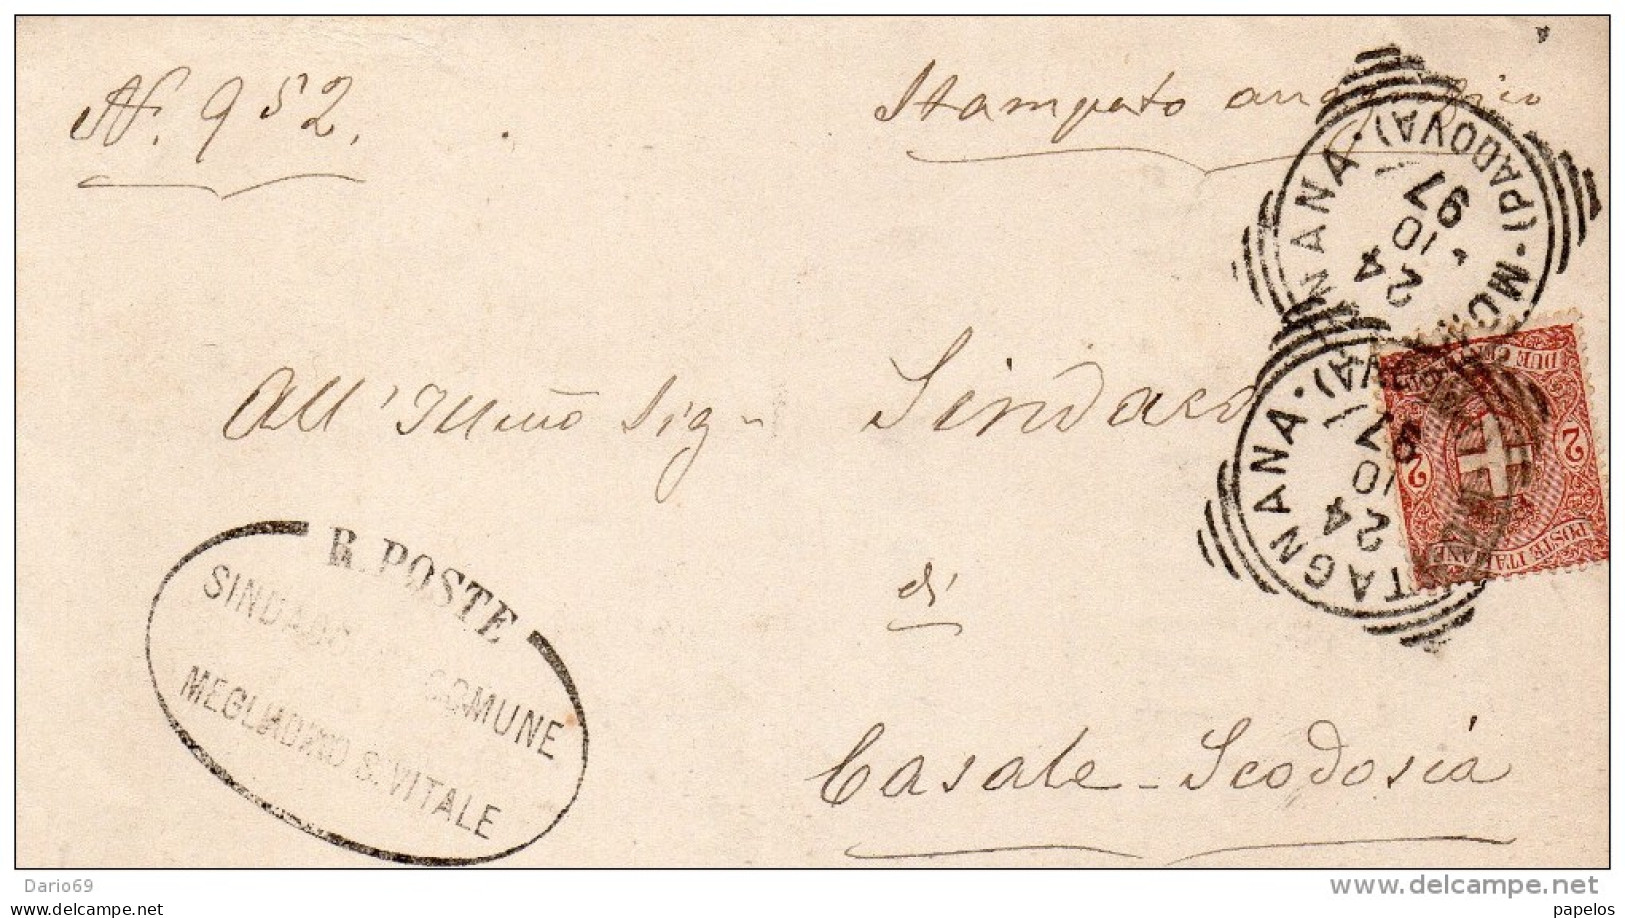 N. 952.
Stampato anagrafico
NANA · (PADOVA) · MO
24
10
97
All' Illmo Sig. Sindaco
TAGNANA · VA)
24
10
97
DUE
2 2
POSTE ITALIANE
R. POSTE
SINDACO COMUNE
MEGLIADINO S. VITALE
di
Casale-Scodosia
Dario69
www.delcampe.net
papelos